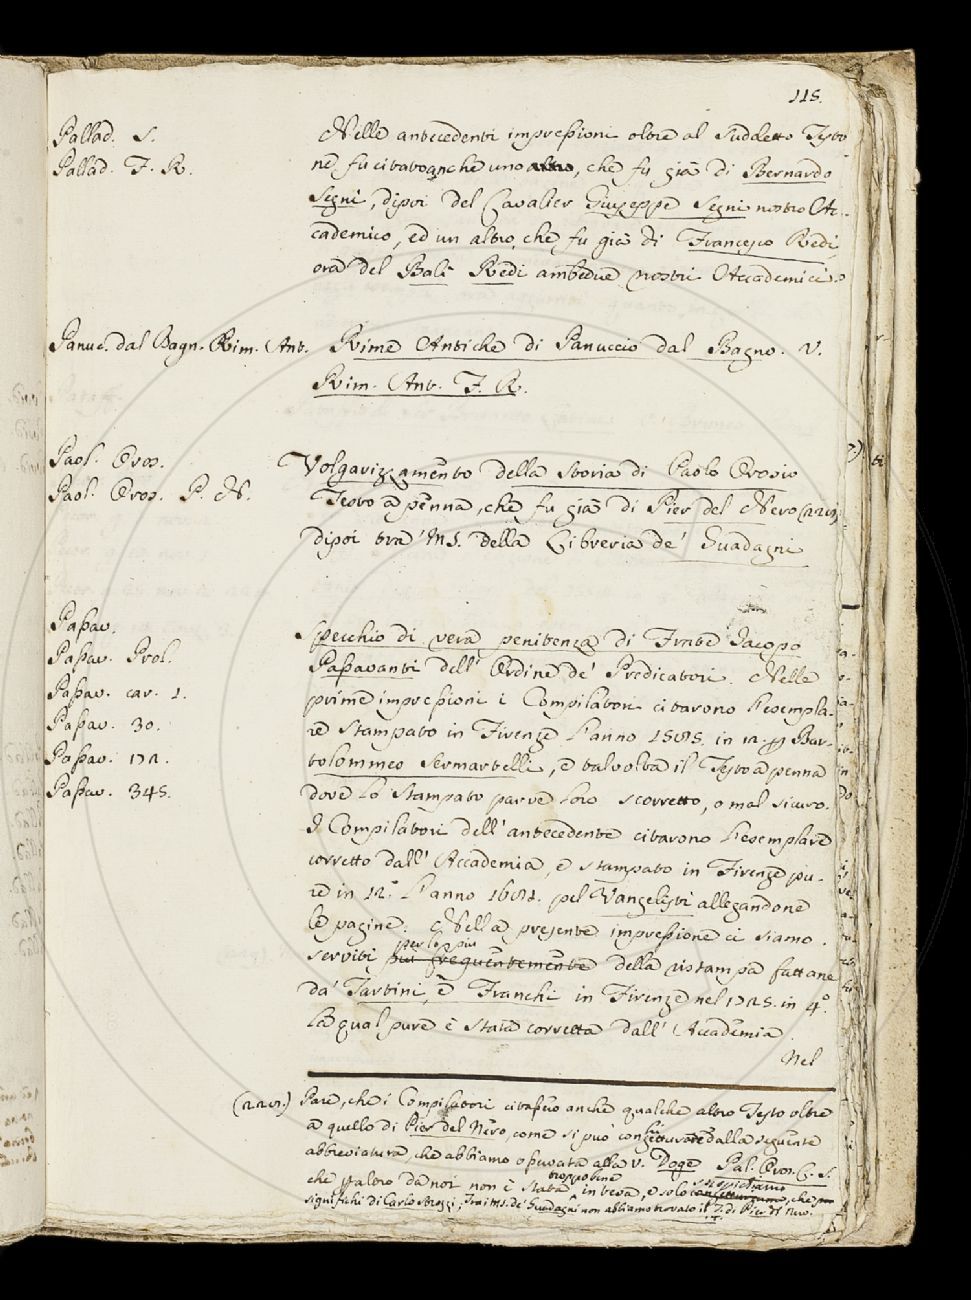 115.
Pallad. S.
Pallad. F. R.
Nelle antecedenti impressioni oltre al suddetto Testo
ne fu citato anche uno altro, che fu già di Bernardo
Segni, dipoi del Cavalier Giuseppe Segni nostro Ac-
cademico, ed un altro, che fu già di Francesco Redi,
ora del Balì Redi ambedue nostri Accademici.
Panuc. dal Bagn. Rim. Ant.
Rime Antiche di Panuccio dal Bagno. V.
Rim. Ant. F. R.
Paol. Oros.
Paol. Oros. P. N.
Volgarizzamento della Storia di Paolo Orosio
Testo a penna, che fu già di Pier del Nero (221),
dipoi tra' MS. della Libreria de' Guadagni
Passav.
Passav. Prol.
Passav. car. 1.
Passav. 30.
Passav. 172.
Passav. 345.
Specchio di vera penitenza di Frate Jacopo
Passavanti dell' Ordine de' Predicatori. Nelle
prime impressioni i Compilatori citarono l'esempla-
re stampato in Firenze l'anno 1585. in 12. per Bar-
tolommeo Sermartelli, e talvolta il Testo a penna
dove lo stampato parve loro scorretto, o mal sicuro.
I Compilatori dell' antecedente citarono l'esemplare
corretto dall' Accademia, e stampato in Firenze pu-
re in 12.° l'anno 1681. pel Vangelisti allegandone
le pagine. Nella presente impressione ci siamo
per lo più
serviti più frequentemente della ristampa fattane
da' Tartini, e Franchi in Firenze nel 1725. in 4.°
la qual pure è stata corretta dall' Accademia.
Nel
(221.) Pare, che i Compilatori citassero anche qualche altro Testo oltre
a quello di Pier del Nero, come si può conghietturare dalla seguente
abbreviatura, che abbiamo osservata alla v. Doge Pal. Oros. C. S.
che per altro da noi non è stata troppo bene intesa, e solo sospettiamo, che
significhi di Carlo Strozzi; Tra i MS. de' Guadagni non abbiamo trovato il T. di Pier del Nero.